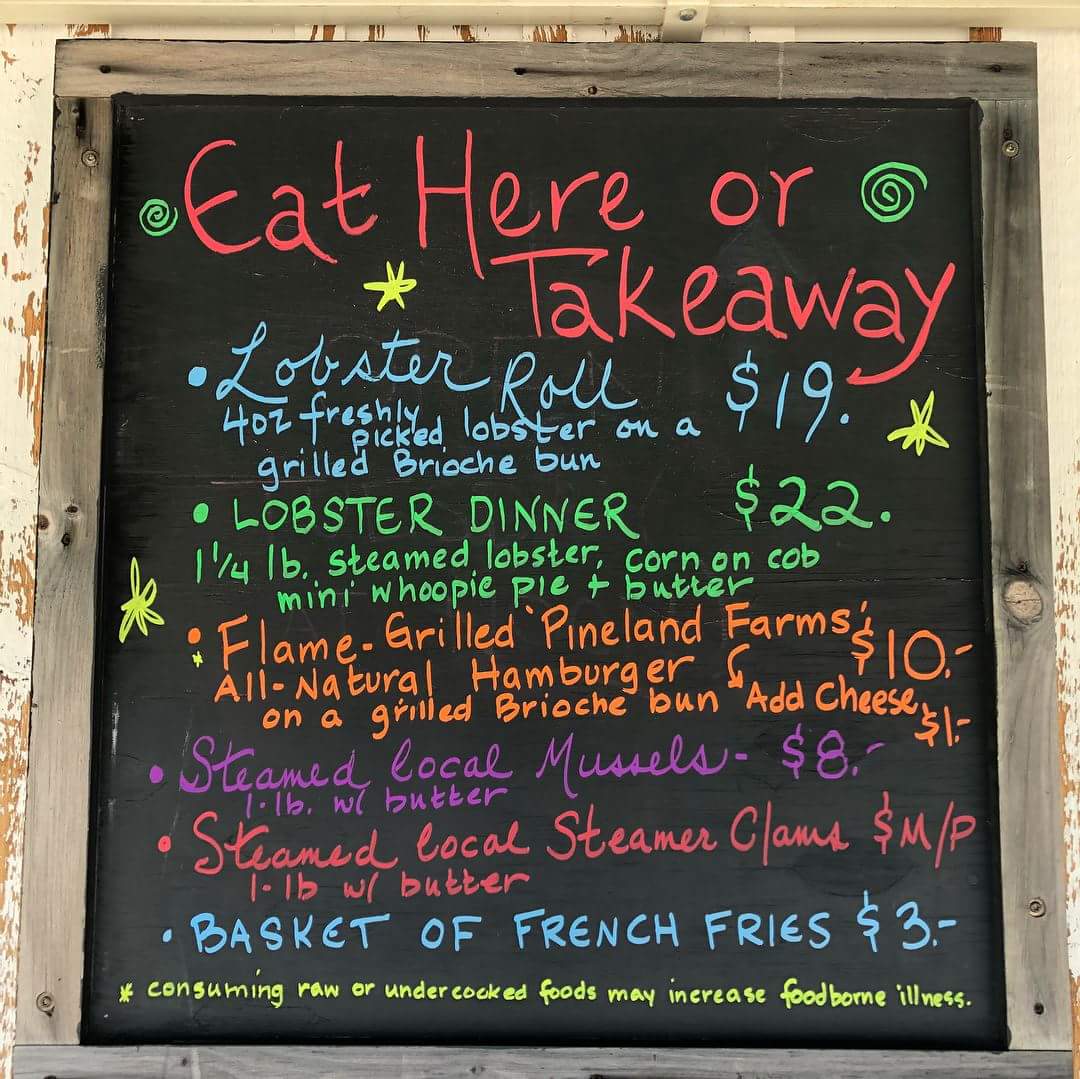 Eat Here or
Takeaway
• Lobster Roll $19.
4oz freshly
picked lobster on a
grilled Brioche bun
• LOBSTER DINNER $22.
1 1/4 lb. steamed lobster, corn on cob
mini whoopie pie + butter
• Flame-Grilled Pineland Farms' $10.-
* All-Natural Hamburger
on a grilled Brioche bun Add Cheese $1.-
• Steamed local Mussels - $8.-
1-lb. w/ butter
• Steamed local Steamer Clams $M/P
1-lb w/ butter
• BASKET OF FRENCH FRIES $3.-
* consuming raw or undercooked foods may increase foodborne illness.